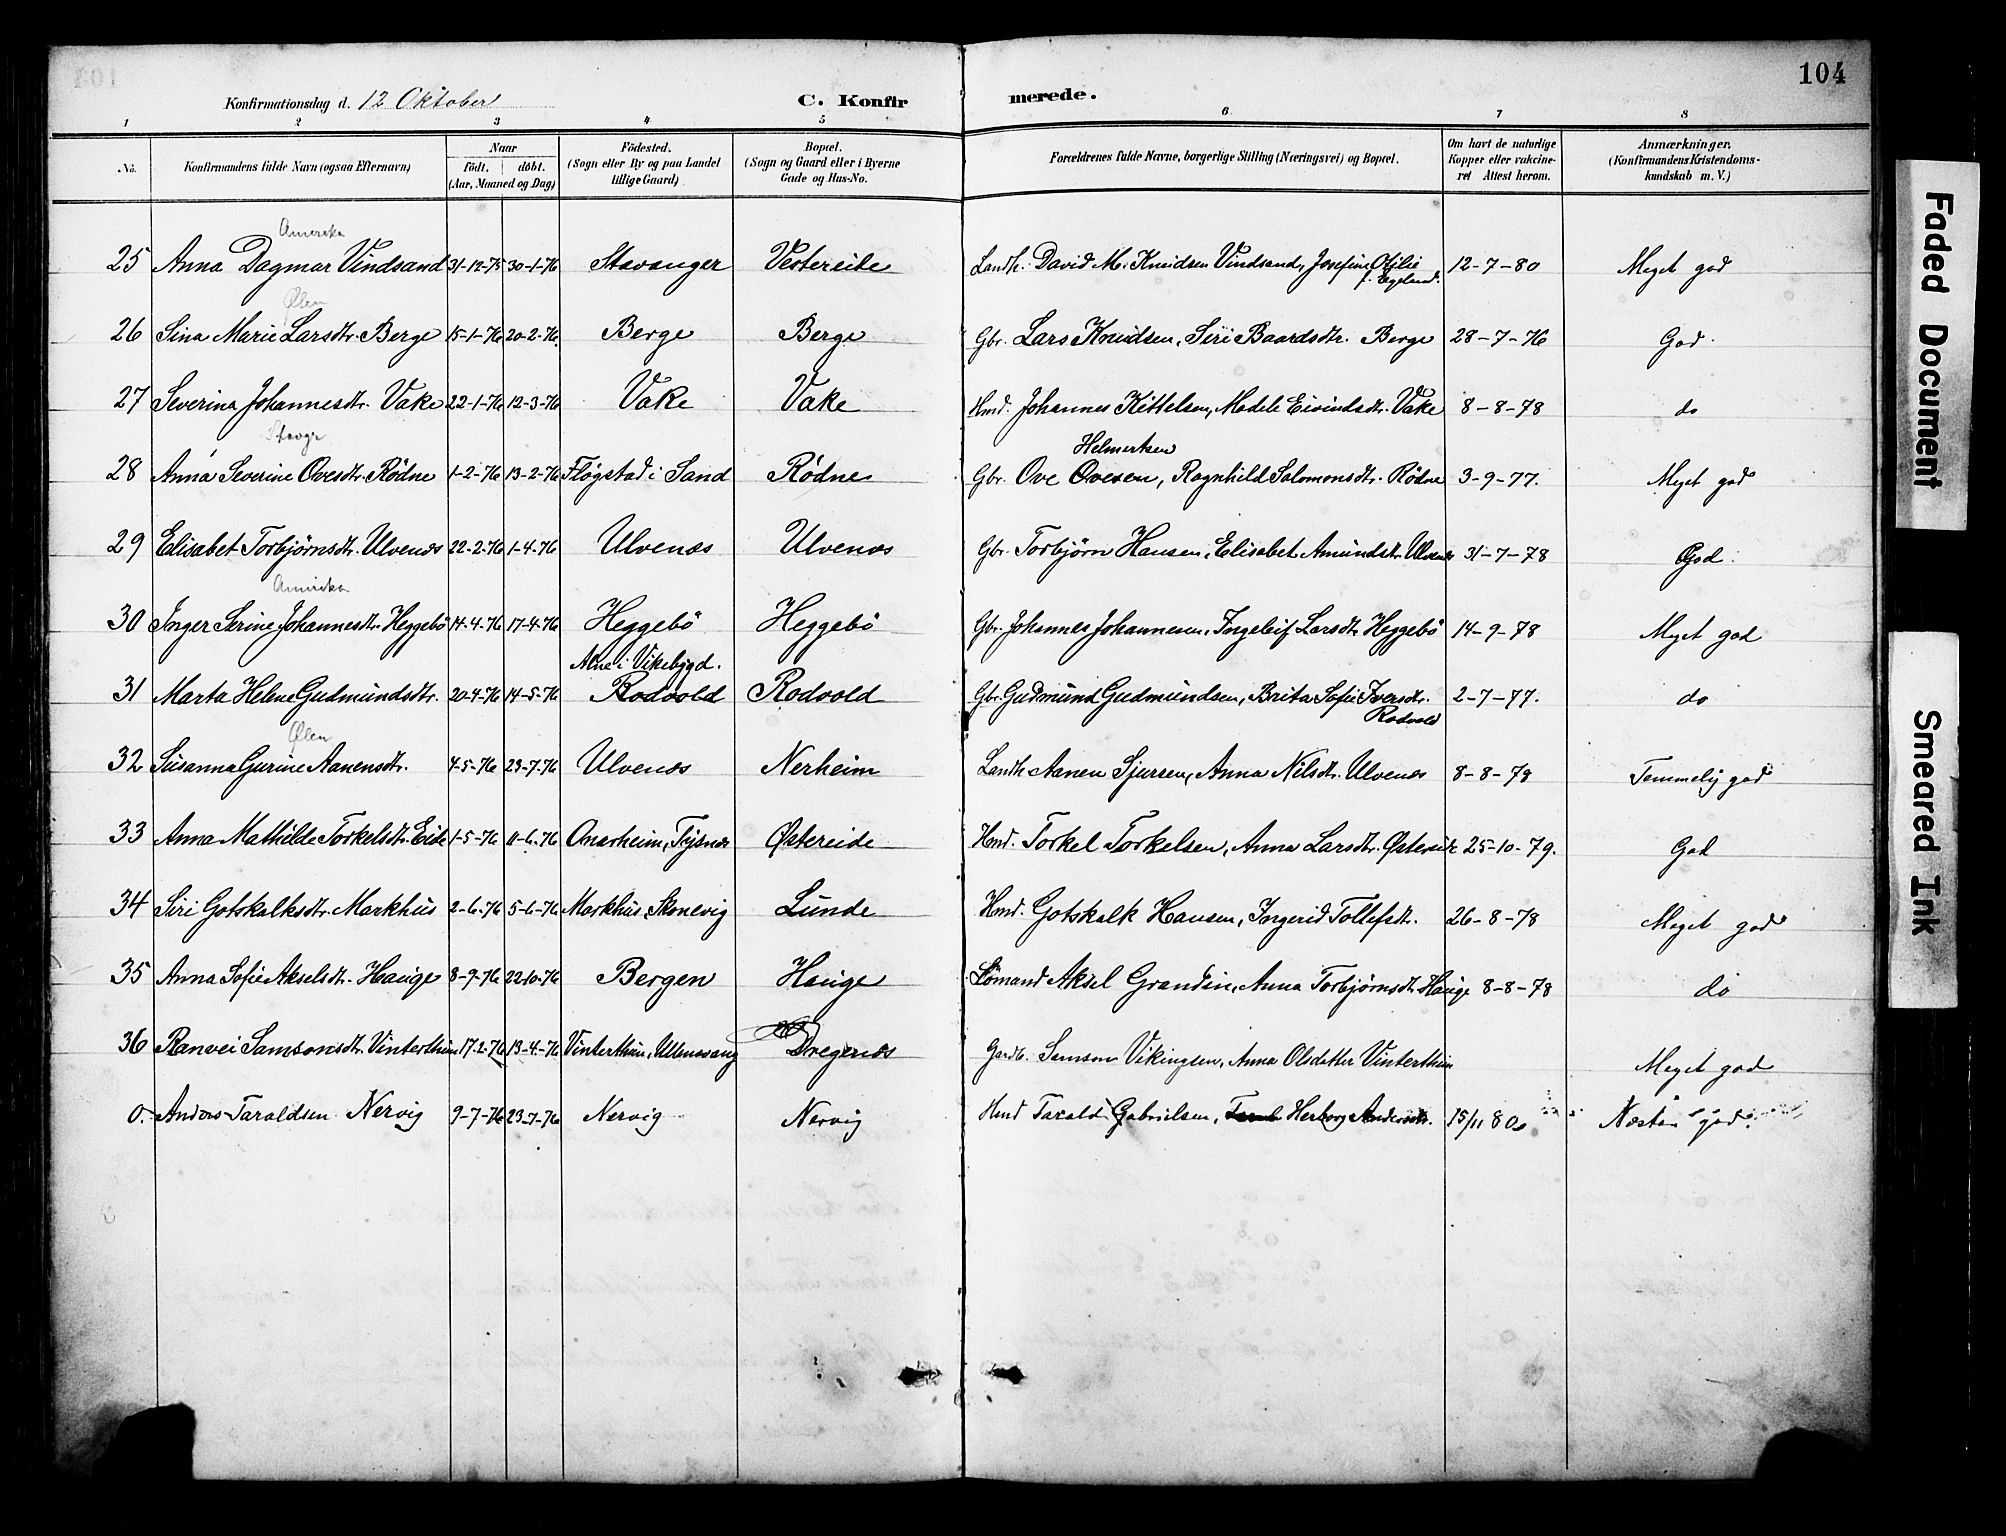 104
Konfirmationsdag d. 12 Oktober C. Konfirmerede.
1 2 3 4 5 6 7 8
No. Konfirmandens fulde Navn (ogsaa Efternavn) Naar født. døbt. (Aar, Maaned og Dag) Födested. (Sogn eller By og paa Landet tillige Gaard) Bopæl. (Sogn og Gaard eller i Byerne Gade og Hus-No. Forældrenes fulde Navne, borgerlige Stilling (Næringsvei) og Bopæl. Om havt de naturlige Kopper eller vakcineret Attest herom. Anmærkninger. (Konfirmandens Kristendomskundskab m. V.)
Amerika
25 Anna Dagmar Vindsand 31-12-75 30-1-76 Stavanger Vestereide Landh. David M. Knudsen Vindsand, Josefine Otilie f. Egeland. 12-7-80 Meget god
Ølen
26 Sina Marie Larsdtr. Berge 15-1-76 20-2-76. Berge Berge Gbr. Lars Knudsen, Siri Baardsdtr. Berge 28-7-76 God.
27 Severina Johannesdtr. Vake 22-1-76 12-3-76 Vake Vake Hmd. Johannes Kittelsen, Madele Eivindsdtr. Vake 8-8-78 do
Stavgr
Helmertsen
28 Anna Severine Ovesdtr. Rödne 1-2-76 13-2-76 Fløgstad i Sand Rödne Gbr. Ove Ovesen, Ragnhild Salomonsdtr. Rödne 3-9-77. Meget god
29 Elisabet Torbjørnsdtr. Ulvenæs 22-2-76 1-4-76 Ulvenæs Ulvenæs Gbr. Torbjørn Hansen, Elisabet Amundsdtr. Ulvenæs 31-7-78 God.
Amerika
30 Inger Serine Johannesdtr. Heggebö 14-4-76 17-4-76 Heggebö Heggebö Gbr. Johannes Johannesen, Ingeleif Larsdtr. Heggebö 14-9-78 Meget god
Alne i Vikebygd.
31 Marta Helene Gudmundsdtr. 20-4-76 14-5-76 Rodvold Rodvold Gbr. Gudmund Gudmundsen, Brita Sofie Iversdtr. Rodvold 2-7-77. do
Ølen
32 Susanna Gurine Aanensdtr. 4-5-76 23-7-76 Ulvenæs Nerheim Landh. Aanen Sjursen, Anna Nilsdtr. Ulvenæs 8-8-78 Temmelig god
33 Anna Mathilde Torkelsdtr. Eide 1-5-76 11-6-76 Onarheim, Tysnæs Østereide Hmd. Torkel Torkelsen, Anna Larsdtr. Østereide 25-10-79. God
34 Siri Gotskalksdtr. Markhus 2-6-76 5-6-76 Markhus, Skonevig Lunde Hmd. Gotskalk Hansen, Ingerid Tollefsdtr. 26-8-78 Meget god
35 Anna Sofie Akselsdtr. Hauge 8-9-76 22-10-76 Bergen Hauge Sömand Aksel Grandin, Anna Torbjørnsdtr. Hauge 8-8-78 do
36 Ranvei Samsonsdtr. Vinterthun 17-2-76 13-4-76 Vinterthun, Ullensvang Dregenæs Gardb. Samson Vikingsen, Anna Olsdatter Vinterthun Meget god
0. Anders Taraldsen Nervig 9-7-76 23-7-76 Nervig Nervig Hmd Tarald Gabrielsen, Herborg Andersdtr. 15/11 80 Næsten god.
Faded Document
Smeared Ink